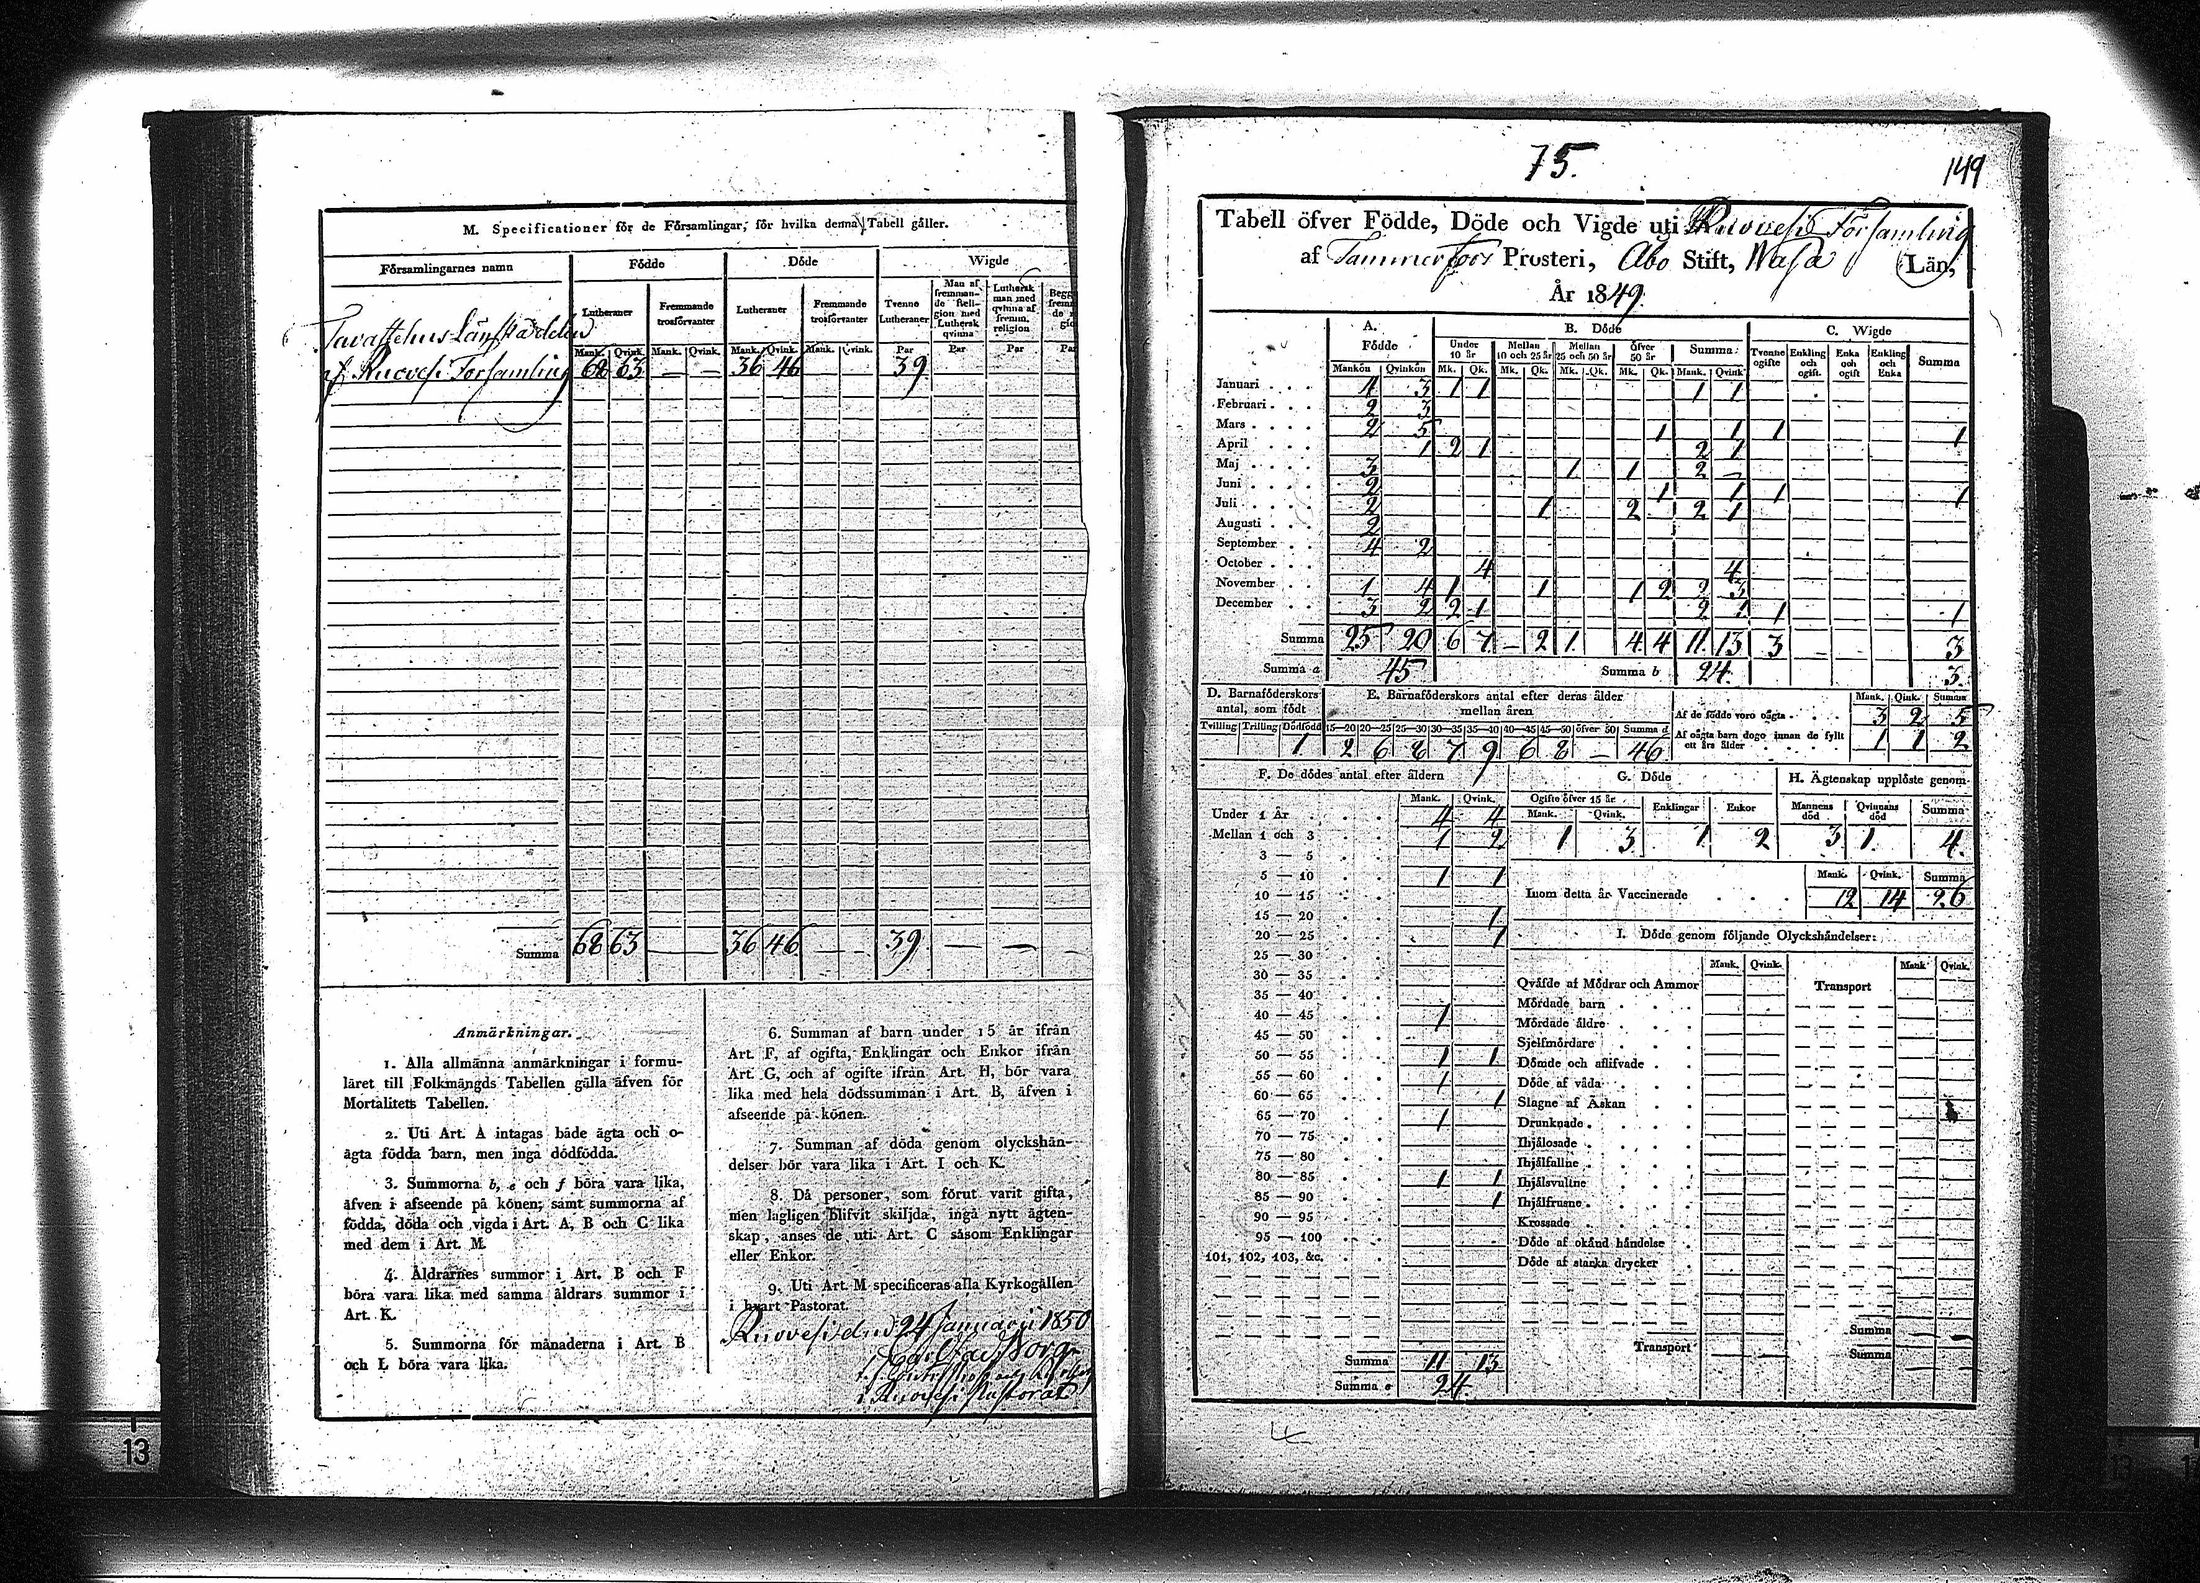 M. Specificationer för de Församlingar, för hvilka denna Tabell gäller.
Församlingarnes namn Födde Döde Wigde
Lutheraner Fremmande trosförvanter Lutheraner Fremmande trosförvanter Tvenne Lutheraner Man af fremmande Religion med Luthersk qvinna Luthersk man med qvinna af fremm. religion
Mank. Qvink. Mank. Qvink. Mank. Qvink. Mank. Qvink. Par Par Par Par
Tavastehus Läns andelen
af Ruovesi Församling 68 63 — — 36 46 39
Summa 68 63 — — 36 46 — — 39 — — -
Anmärkningar.
1. Alla allmänna anmärkningar i formu-
läret till Folkmängds Tabellen gälla äfven för
Mortalitets Tabellen.
2. Uti Art. A intagas både ägta och o-
ägta födda barn, men inga dödfödda.
3. Summorna b, e och f böra vara lika,
äfven i afseende på könen; samt summorna af
födda, döda och vigda i Art. A, B och C lika
med dem i Art. M.
4. Åldrarnes summor i Art. B och F
böra vara lika med samma åldrars summor i
Art. K.
5. Summorna för månaderna i Art. B
och L böra vara lika.
6. Summan af barn under 15 år ifrån
Art. F, af ogifta, Enklingar och Enkor ifrån
Art. G, och af ogifte ifrån Art. H, bör vara
lika med hela dödssumman i Art. B, äfven i
afseende på könen.
7. Summan af döda genom olyckshän-
delser bör vara lika i Art. I och K.
8. Då personer, som förut varit gifta,
men lagligen blifvit skiljda, ingå nytt ägten-
skap, anses de uti Art. C såsom Enklingar
eller Enkor.
9. Uti Art. M specificeras alla Kyrkogällen
i hvart Pastorat.
Ruovesi den 24 Januarii 1850
i Ruovesi Pastorat
75.
149
Tabell öfver Födde, Döde och Vigde uti Ruovesi Församling
af Tammerfors Prosteri, Åbo Stift, Wasa Län,
År 1849.
A. Födde B. Döde C. Wigde
Under 10 år Mellan 10 och 25 år Mellan 25 och 50 år Öfver 50 år Summa Tvenne ogifte Enkling och ogift. Enka och ogift Enkling och Enka Summa
Mankön Qvinkön Mk. Qk. Mk. Qk. Mk. Qk. Mk. Qk. Mank. Qvink
Januari 4 3 1 1 1 1
Februari 2 3
Mars 2 5 1 1 1 1
April 1 2 1 2 1
Maj 3 1 1 2 -
Juni 2 1 1 1 1
Juli 2 1 2 2 1
Augusti 2
September 4 2
October 4 4
November 1 4 1 1 1 2 2 3
December 3 2 2 1 2 1 1 1
Summa 25 20 6 7 — 2 1 4 4 11 13 3 3
Summa a 45 Summa b 24 3.
D. Barnaföderskors antal, som födt E. Barnaföderskors antal efter deras ålder mellan åren
Tvilling Trilling Dödfödd 15—20 20—25 25—30 30—35 35—40 40—45 45—50 öfver 50 Summa d
1 2 6 8 7 9 6 8 — 46
Mank. Qink. Summa
Af de födde voro oägta 3 2 5
Af oägta barn dogo innan de fyllt ett års ålder 1 1 2
F. De dödes antal efter åldern
Mank. Qvink.
Under 1 År 4 4
Mellan 1 och 3 1 2
3 — 5
5 — 10 1 1
10 — 15
15 — 20 1
20 — 25 1
25 — 30
30 — 35
35 — 40
40 — 45 1
45 — 50
50 — 55 1 1
55 — 60 1
60 — 65 1
65 — 70 1
70 — 75
75 — 80
80 — 85 1 1
85 — 90 1
90 — 95
95 — 100
101, 102, 103, &c.
Summa 11 13
Summa e 24.
G. Döde H. Ägtenskap upplöste genom
Ogifte öfver 15 år Enklingar Enkor Mannens död Qvinnans död Summa
Mank. Qvink.
1 3 1 2 3 1. 4.
Mank. Qvink. Summa
Inom detta år Vaccinerade 12 14 26
I. Döde genom följande Olyckshändelser:
Mank. Qvink. Mank Qvink.
Qväfde af Mödrar och Ammor Transport
Mördade barn
Mördade äldre
Sjelfmördare
Dömde och aflifvade
Döde af våda
Slagne af Åskan
Drunknade
Ihjälosade
Ihjälfallne
Ihjälsvultne
Ihjälfrusne
Krossade
Döde af okänd händelse
Döde af starka drycker
Summa
Transport Summa
13